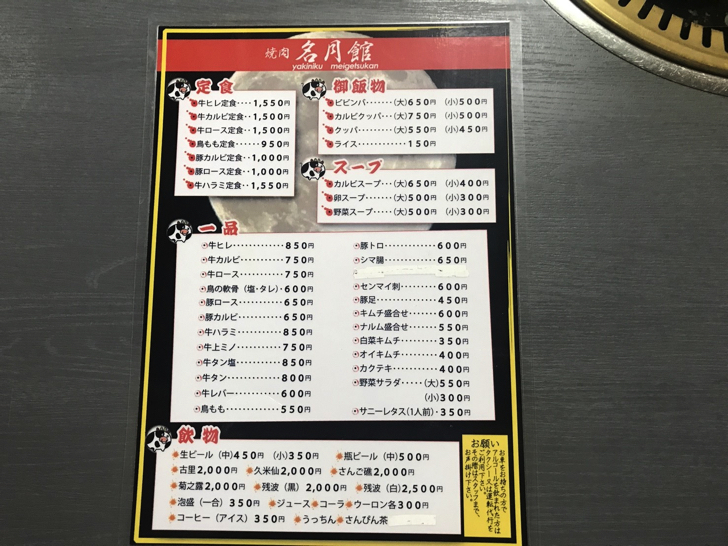 焼肉 名月館
yakiniku meigetsukan
定食
牛ヒレ定食‥‥1,550円
牛カルビ定食‥1,500円
牛ロース定食‥1,500円
鳥もも定食‥‥‥950円
豚カルビ定食‥1,000円
豚ロース定食‥1,000円
牛ハラミ定食‥1,550円
御飯物
ビビンバ‥‥(大)650円 (小)500円
カルビクッパ‥‥(大)750円 (小)500円
クッパ‥‥‥‥(大)550円 (小)450円
ライス‥‥‥‥‥‥150円
スープ
カルビスープ‥‥(大)650円 (小)400円
卵スープ‥‥‥(大)500円 (小)300円
野菜スープ‥‥(大)500円 (小)300円
一品
牛ヒレ‥‥‥‥‥‥850円
牛カルビ‥‥‥‥‥750円
牛ロース‥‥‥‥‥750円
鳥の軟骨(塩・タレ)‥600円
豚ロース‥‥‥‥‥650円
豚カルビ‥‥‥‥‥650円
牛ハラミ‥‥‥‥‥850円
牛上ミノ‥‥‥‥‥750円
牛タン塩‥‥‥‥‥850円
牛タン‥‥‥‥‥‥800円
牛レバー‥‥‥‥‥600円
鳥もも‥‥‥‥‥‥550円
豚トロ‥‥‥‥‥‥600円
シマ腸‥‥‥‥‥‥650円
センマイ刺‥‥‥‥600円
豚足‥‥‥‥‥‥‥450円
キムチ盛合せ‥‥‥600円
ナルム盛合せ‥‥‥550円
白菜キムチ‥‥‥‥350円
オイキムチ‥‥‥‥400円
カクテキ‥‥‥‥‥400円
野菜サラダ‥‥‥(大)550円
(小)300円
サニーレタス(1人前)・350円
飲物
生ビール(中)450円 (小)350円 瓶ビール(中)500円
古里2,000円 久米仙2,000円 さんご礁2,000円
菊之露2,000円 残波(黒)2,000円 残波(白)2,500円
泡盛(一合)350円 ジュース コーラ ウーロン各300円
コーヒー(アイス)350円 うっちん さんぴん茶
お願い
お車をお持ちの方で
アルコールを飲まれた方は
タクシー又は運転代行を
ご利用下さい。
その際はスタッフまで、
お声掛け下さい。